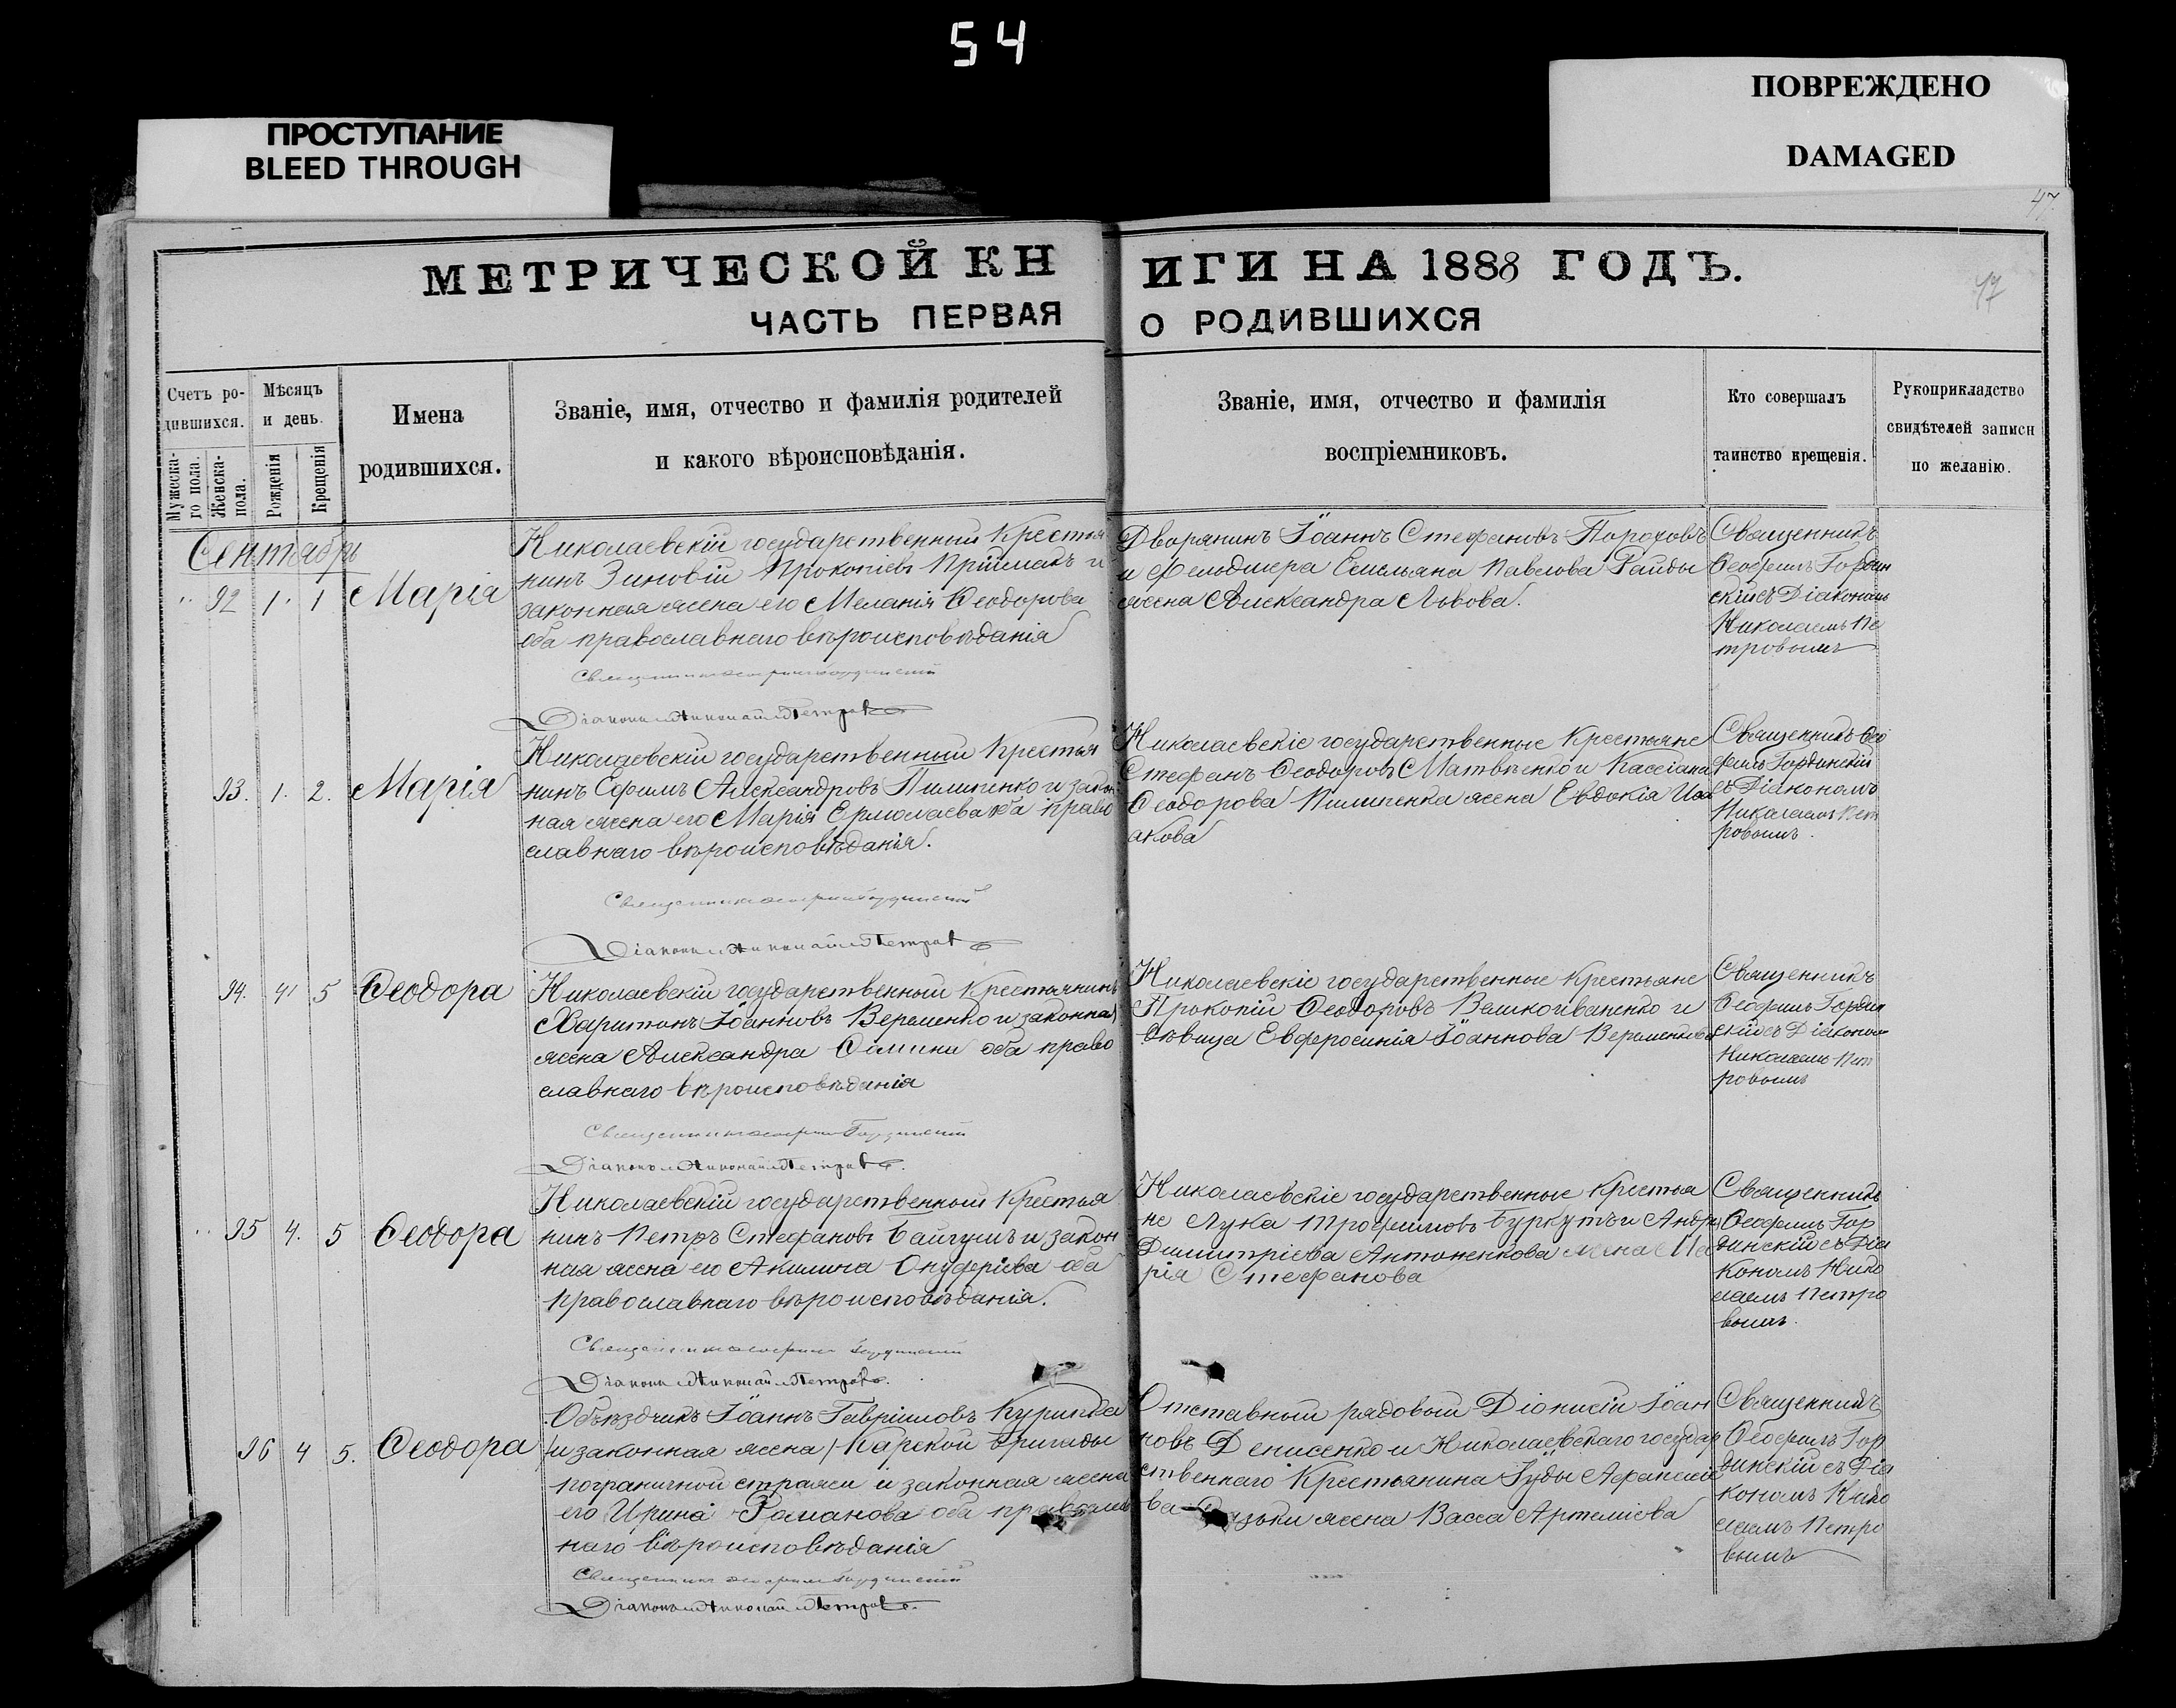 54
ПРОСТУПАНИЕ
BLEED THROUGH
ПОВРЕЖДЕНО
DAMAGED
47
47
МЕТРИЧЕСКОЙ КНИГИ НА 1888 ГОДЪ.
ЧАСТЬ ПЕРВАЯ О РОДИВШИХСЯ
Счетъ ро-
дившихся.
Мужеска-
го пола.
Женска-
пола.
Мѣсяцъ
и день.
Рожденія
Крещенія
Имена
родившихся.
Званіе, имя, отчество и фамилія родителей
и какого вѣроисповѣданія.
Званіе, имя, отчество и фамилія
воспріемниковъ.
Кто совершалъ
таинство крещенія.
Рукоприкладство
свидѣтелей записи
по желанію.
Сентябрь
92 1 1 Марія
Николаевскій государственный Крестья
нинъ Зиновій Прокопіевъ Пріймакъ и
законная жена его Меланія Ѳеодорова
оба православнаго вѣроисповѣданія
Священникъ Ѳеофилъ Гординскій
Діаконъ Николай Петровъ
Дворянинъ Іоаннъ Стефановъ Пороховъ
и Фельдшера Емельяна Павлова Гайды
жена Александра Львова.
Священникъ
Ѳеофилъ Гордин
скій съ Діакономъ
Николаемъ Пе
тровымъ
93. 1. 2. Марія
Николаевскій государственный Крестья
нинъ Ефимъ Александровъ Пилипенко и закон
ная жена его Марія Ермолаева оба право
славнаго вѣроисповѣданія.
Священникъ Ѳеофилъ Гординскій
Діаконъ Николай Петровъ
Николаевскіе государственные Крестьяне
Стефанъ Ѳеодоровъ Матвѣенко и Кассіана
Ѳеодорова Пилипенка жена Евдокія Иса
акова
Священникъ Ѳео
филъ Гординскій
съ Діакономъ
Николаемъ Пет
ровымъ.
94. 4 5 Ѳеодора
Николаевскій государственный Крестьянинъ
Харитонъ Іоанновъ Веременко и законная
жена Александра оба право
славнаго вѣроисповѣданія
Священникъ Ѳеофилъ Гординскій
Діаконъ Николай Петровъ.
Николаевскіе государственные Крестьяне
Прокопій Ѳеодоровъ Великоиваненко и
дѣвица Евфросинія Іоаннова
Священникъ
Ѳеофилъ Гордин
скій съ Діаконом
Николаемъ Пет
ровымъ
95 4. 5 Ѳеодора
Николаевскій государственный Крестья
нинъ Петръ Стефановъ Байгушъ и закон
ная жена его Акилина Онуфріева оба
православнаго вѣроисповѣданія.
Священникъ Ѳеофилъ Гординскій
Діаконъ Николай Петровъ.
Николаевскіе государственные Крестья
не Лука Трофимовъ Буркутъ и Андрея
Димитріева Антоненкова жена Ма
рія Стефанова
Священникъ
Ѳеофилъ Гор
динскій съ Діа
кономъ Нико
лаемъ Петро
вымъ.
96 4 5. Ѳеодора
Объѣздчикъ Іоаннъ Гавріиловъ
/и законная жена/ Карской бригады
пограничной стражи и законная жена
его Ирина Романова оба православ
наго вѣроисповѣданія
Священникъ Ѳеофилъ Гординскій
Діаконъ Николай Петровъ.
Отставный рядовый Діонисій Іоан
новъ Денисенко и Николаевскаго государ
ственнаго Крестьянина Іуды Афанасіе
ва жена Васса Артеміева
Священникъ
Ѳеофилъ Гор
динскій съ Діа
кономъ Нико
лаемъ Петро
вымъ